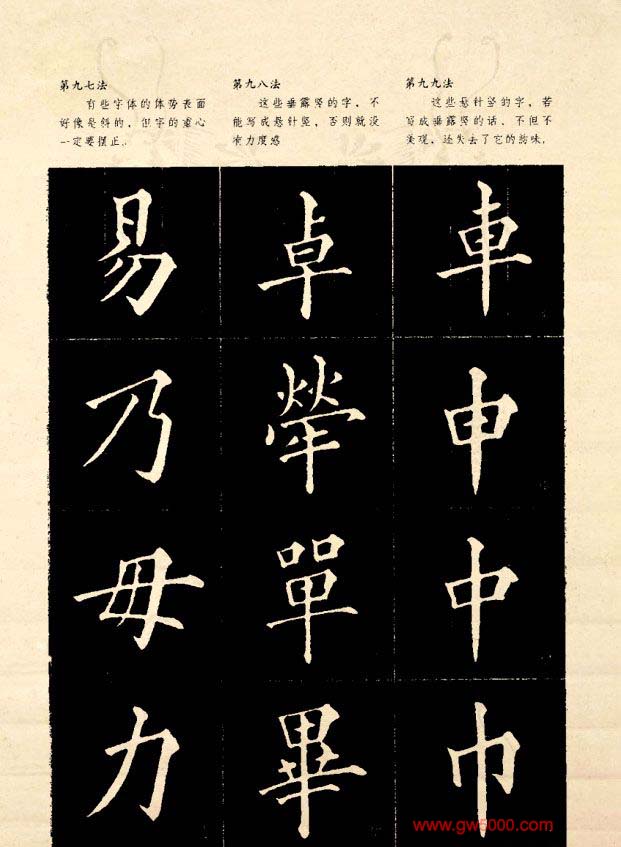 第九七法
有些字体的体势表面
好像是斜的，但字的重心
一定要摆正。
第九八法
这些垂露竖的字，不
能写成悬针竖，否则就没
有力度感
第九九法
这些悬针竖的字，若
写成垂露竖的话，不但不
美观，还失去了它的韵味。
易
乃
毋
力
卓
犖
單
畢
車
申
中
巾
www.gw5000.com